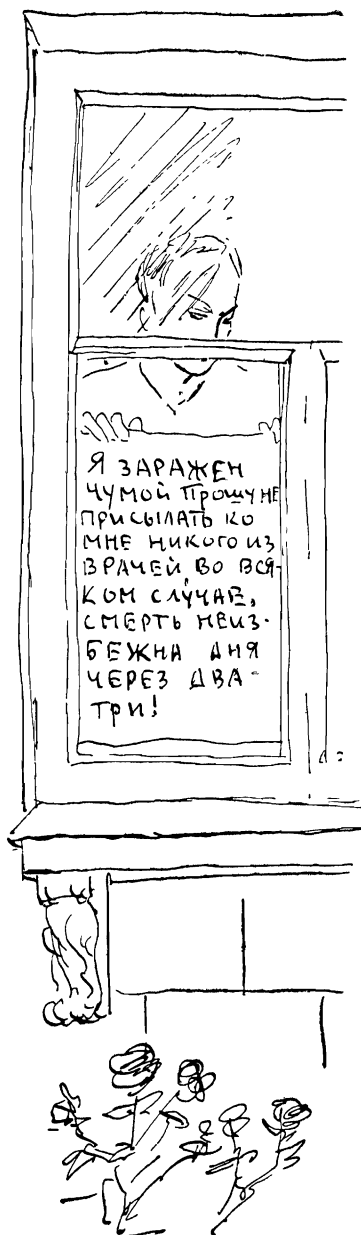 Я ЗАРАЖЕН
ЧУМОЙ ПРОШУ НЕ
ПРИСЫЛАТЬ КО
МНЕ НИКОГО ИЗ
ВРАЧЕЙ ВО ВСЯ-
КОМ СЛУЧАЕ,
СМЕРТЬ НЕИЗ-
БЕЖНА ДНЯ
ЧЕРЕЗ ДВА-
ТРИ!